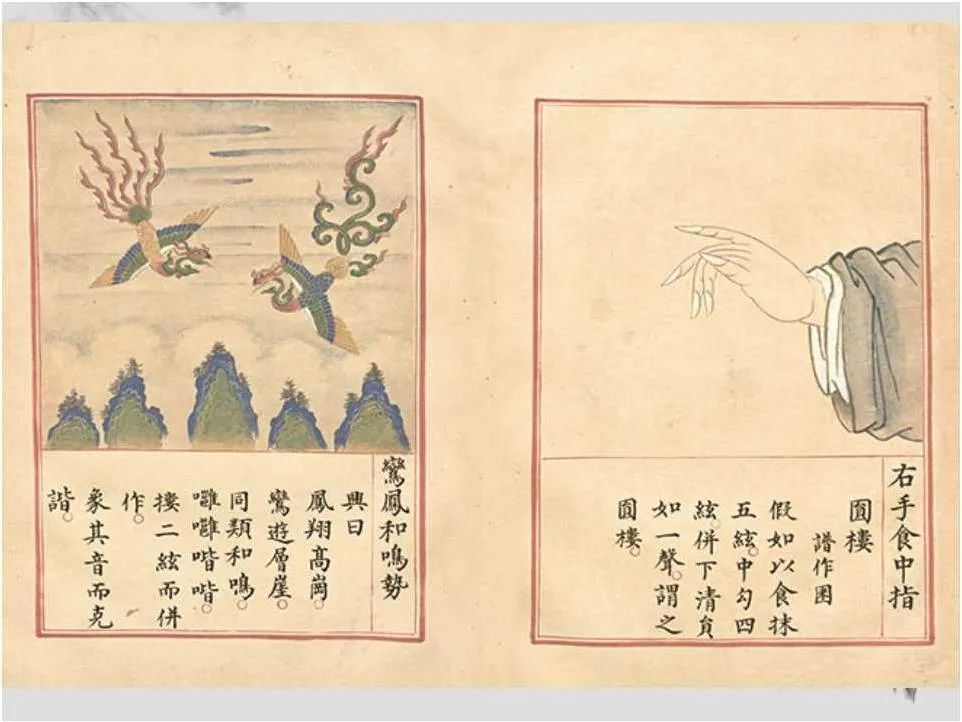 右手食中指
圓摟
譜作囷
假如以食抹
五絃。中勾四
絃。併下清貟
如一聲。謂之
圓摟。
鸞鳳和鳴勢
興曰
鳳翔髙崗。
鸞遊層崖。
同類和鳴。
噰噰喈喈。
摟二絃而併
作。
象其音而克
諧。